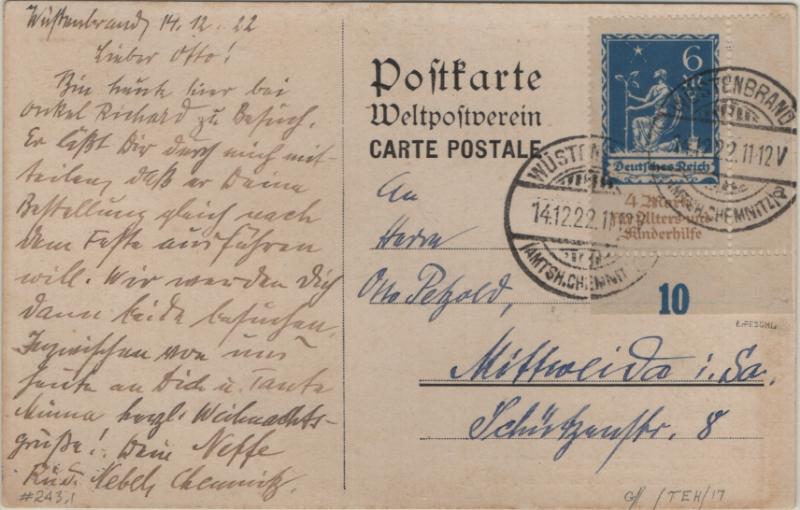 Wüstenbrand, 14.12.22
Lieber Otto!
Bin heute hier bei
Onkel Richard zu Besuch.
Er läßt Dir durch mich mit-
teilen, daß er Deine
Bestellung gleich nach
dem Feste ausführen
will. Wir werden Dich
dann beide besuchen.
Inzwischen von uns
heute an Dich u. Tante
Minna herzl. Weihnachts-
grüße! Dein Neffe
Rud. Chemnitz.
#243,1
Postkarte
Weltpostverein
CARTE POSTALE
An
Herrn
Otto Petzold,
Mittweida i. Sa.
Schützenstr. 8
6
Deutsches Reich
4 Mark
Alters und
Kinderhilfe
WÜSTENBRAND
14.12.22.11-12V
(AMTSH.CHEMNITZ)
WÜSTENBRAND
14.12.22.11-12V
(AMTSH.CHEMNITZ)
10
E.PESCHL
/TEH/17